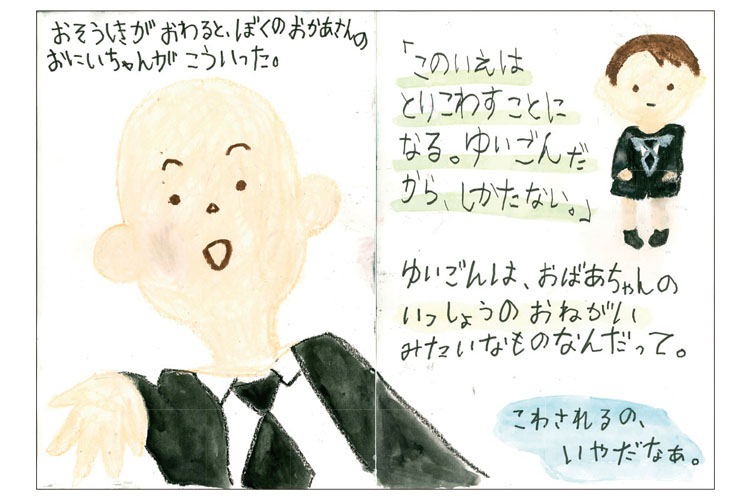 おそうしきが おわると、ぼくのおかあさんの
おにいちゃんが こういった。
「このいえは
とりこわすことに
なる。ゆいごんだ
から、しかたない。」
ゆいごんは、おばあちゃんの
いっしょうのおねがい
みたいなものなんだって。
こわされるの、
いやだなぁ。